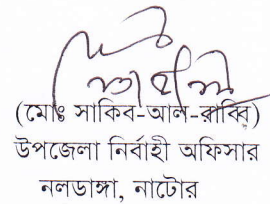 (মোঃ সাকিব-আল-রাব্বি)
উপজেলা নির্বাহী অফিসার
নলডাঙ্গা, নাটোর